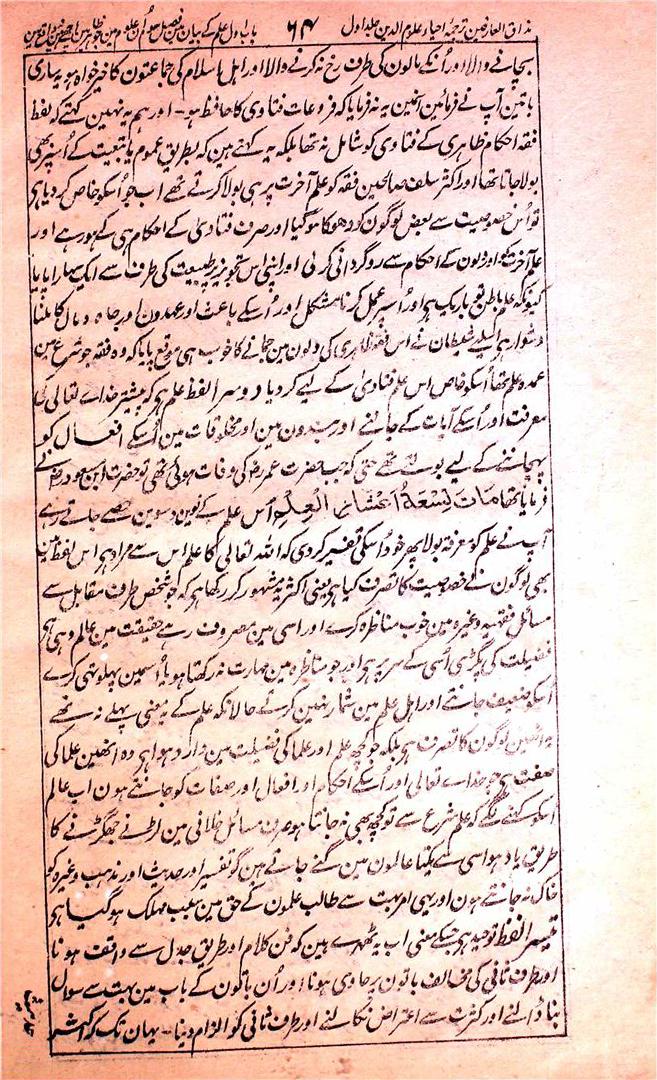 مذاق العارفین ترجمۂ احیاء علوم الدین جلد اول ۶۴ باب اول علم کے بیان مین فصل سوم اُن علوم مین جو ظاہر مین اچھے ہین
بچانے والا اور اُنکے مالون کی طرف رخ نہ کرنے والا اور اہل اسلام کی جماعتون کا خیر خواہ ہو یہ ساری
باتین آپ نے فرمائین آخین یہ نہ فرمایا کہ فروعات فتاوی کا حافظ ہو ۔ اور ہم یہ نہین کہتے کہ لفظ
فقہ احکام ظاہری کے فتاوی کو شامل نہ تھا بلکہ یہ کہتے ہین کہ بطریق عموم یا تبعیت کے اُسپر بھی
بولا جاتا تھا اور اکثر سلف صالحین فقہ کو علم آخرت پر ہی بولا کرتے تھے اب جو اُسکو خاص کر دیا ہی
تو اُس خصوصیت سے بعض لوگون کو دھوکا ہو گیا اور صرف فتاوی کے احکام ہی کے ہو رہے اور
علم آخرت کو اور دلون کے احکام سے روگردانی کر لی اور اپنی اس تجویز پر طبیعت کی طرف سے ایک سہارا پایا
کیونکہ علم باطن تو باریک ہی اور اُسپر عمل کرنا مشکل اور اُسکے باعث اور عہدون اور جاہ و مال کا ملنا
دشوار ہی اسلیے شیطان نے اس فقہ ظاہری کی دلون مین جمانے کا خوب ہی موقع پایا کہ وہ فقہ جو شرع مین
عمدہ علم تھا اُسکو خاص اس علم فتاوی کے لیے کر دیا دوسرا لفظ علم ہی کہ پیشتر خداے تعالی کی
معرفت اور اُسکے آیات کے جاننے اور بندون مین اور مخلوقات مین اُسکے افعال کو
پہچاننے کے لیے بولتے تھے حتی کہ جب حضرت عمر رضہ کی وفات ہوئی تھی تو حضرت ابن مسعود رضہ نے
فرمایا تھا مَاتَ تِسْعَةُ اَعْشَارِ الْعِلْمِ اُس علم کے نوین دسوین حصے جاتے رہے
آپ نے علم کو معرفہ بولا پھر خود اُسکی تفسیر کر دی کہ اللہ تعالی کا علم اس سے مراد ہی اس لفظ مین
بھی لوگون نے خصوصیت کا تصرف کیا ہی یعنی اکثر یہ مشہور کر رکھا ہی کہ جو شخص طرف مقابل سے
مسائل فقہیہ وغیرہ مین خوب مناظرہ کرے اور اسی مین مصروف رہے حقیقت مین عالم وہی ہی
فضیلت کی پگڑی اُسی کے سر پر ہی اور جو مناظرہ مین مہارت نہ رکھتا ہو یا اُسمین پہلوتہی کرے
اُسکو ضعیف جانتے اور اہل علم مین شمار نہین کرتے حالانکہ علم کے یہ معنی پہلے نہ تھے
یہ انھین لوگون کا تصرف ہی بلکہ جو کچھ علم اور علما کی فضیلت مین وارد ہوا ہی وہ انھین علما کی
صفت ہی جو خداے تعالی اور اُسکے احکام اور افعال اور صفات کو جانتے ہون اب عالم
اُسکو کہنے لگے کہ علم شرع سے تو کچھ بھی نہ جانتا ہو صرف مسائل خلافی مین لڑنے جھگڑنے کا
طریق یاد ہو اسی سے یکتا عالمون مین گنے جاتے ہین گو تفسیر اور حدیث اور مذہب وغیرہ کو
خاک نہ جانتے ہون اور یہی امر بہت سے طالب علمون کے حق مین سبب مہلک ہو گیا ہی
تیسرا لفظ توحید ہی جسکے معنی اب یہ ٹھہرے ہین کہ فن کلام اور طریق جدل سے واقف ہونا
اور طرف ثانی کی مخالف باتون پر حاوی ہونا اور اُن باتون کے باب مین بہت سے سوال
بنا ڈالنے اور کثرت سے اعتراض نکالنے اور طرف ثانی کو الزام دینا ۔ یہان تک کہ اکثر